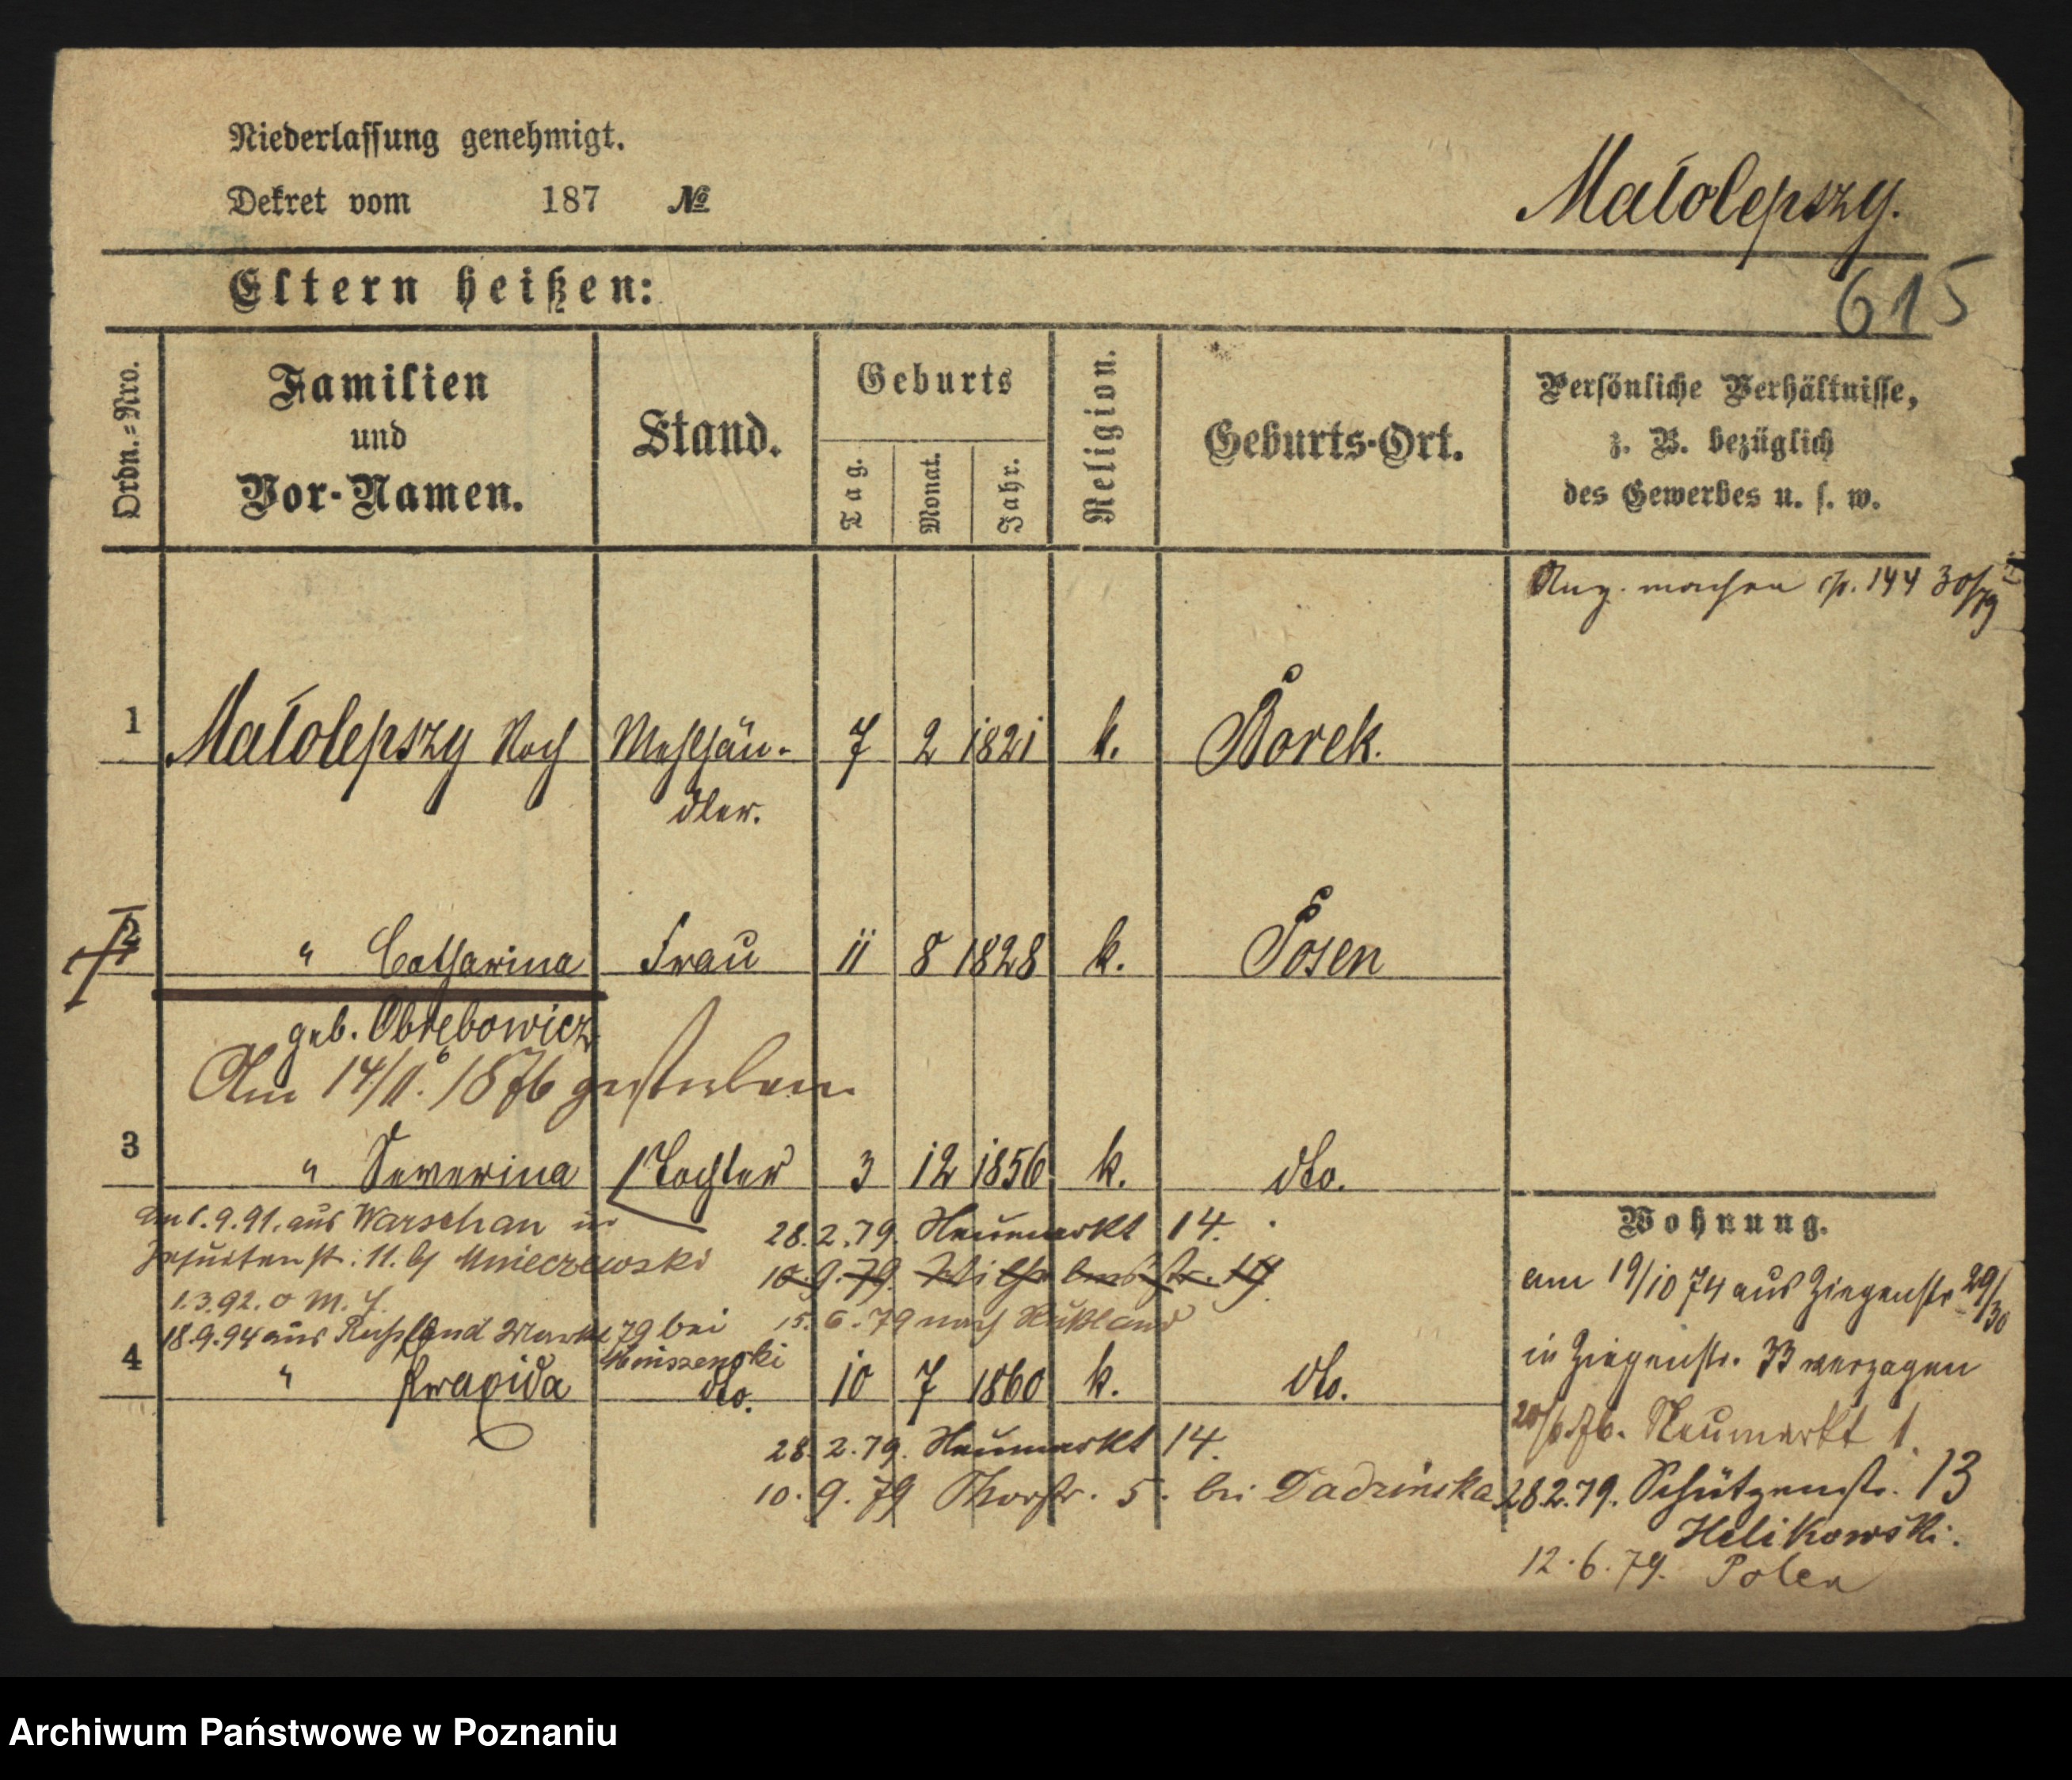 Niederlassung genehmigt.
Dekret vom 187 №
Małolepszy.
615
Eltern heißen:
Ordn.=Nro.
Familien
und
Vor-Namen.
Stand.
Geburts
Tag.
Monat.
Jahr.
Religion.
Geburts-Ort.
Persönliche Verhältnisse,
z. B. bezüglich
des Gewerbes u. s. w.
machen p. 144 30/ 79
1 Małolepszy Roch Mehlhän- 7 2 1821 k. Borek.
dler.
2 " Catharina Frau 11 8 1828 k. Posen
geb. Obrębowicz
Am 14/11. 1876 gestorben
3 " Severina Tochter 3 12 1856 k. dto.
am 1.9.91. aus Warschau in
Jesuitenstr. 11. bei Mnieczewski
1.3.92. o M. 4.
18.9.94 aus Rußland Markt 79 bei
28.2.79. Neumarkt 14.
10.9.79. Wilhelmsstr. 19.
15.6.79 nach Rußland
4 " Praxida dto. 10 7 1860 k. dto.
28.2.79. Neumarkt 14.
10.9.79 Thorstr. 5. bei Dadzinska
Wohnung.
am 19/10 74 aus Ziegenstr 29/30
in Ziegenstr. 33 verzogen
20/6.76. Neumarkt 1.
28.2.79. Schützenstr. 13
Helikowski.
12.6.79. Polen
Archiwum Państwowe w Poznaniu